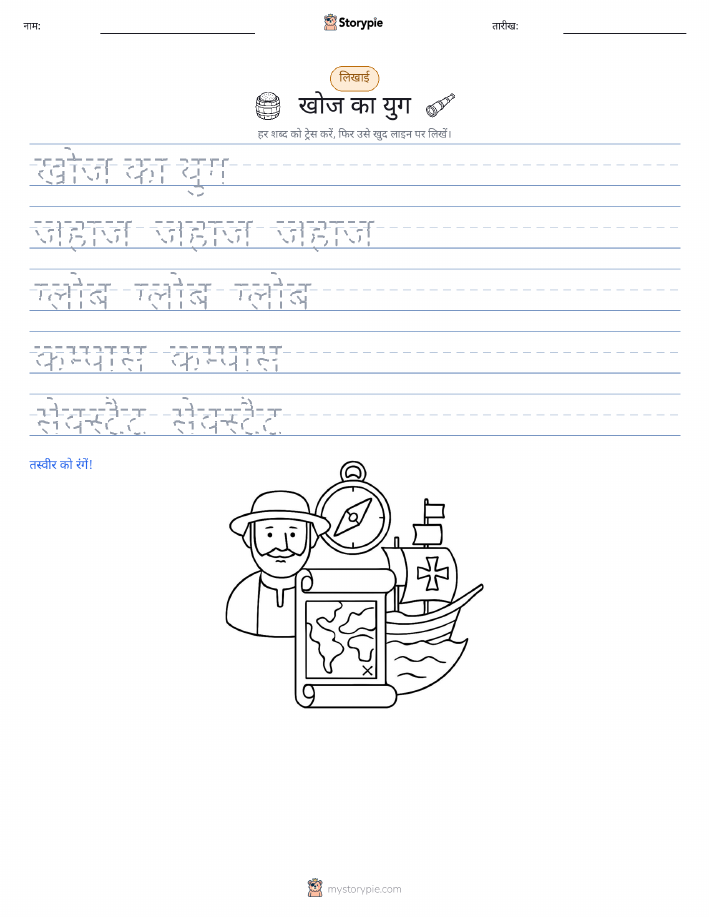 नाम:
Storypie
तारीख:
लिखाई
खोज का युग
हर शब्द को ट्रेस करें, फिर उसे खुद लाइन पर लिखें।
खोज का युग
जहाज जहाज जहाज
ग्लोब ग्लोब ग्लोब
कम्पास कम्पास
सेक्स्टैंट सेक्स्टैंट
तस्वीर को रंगें!
mystorypie.com